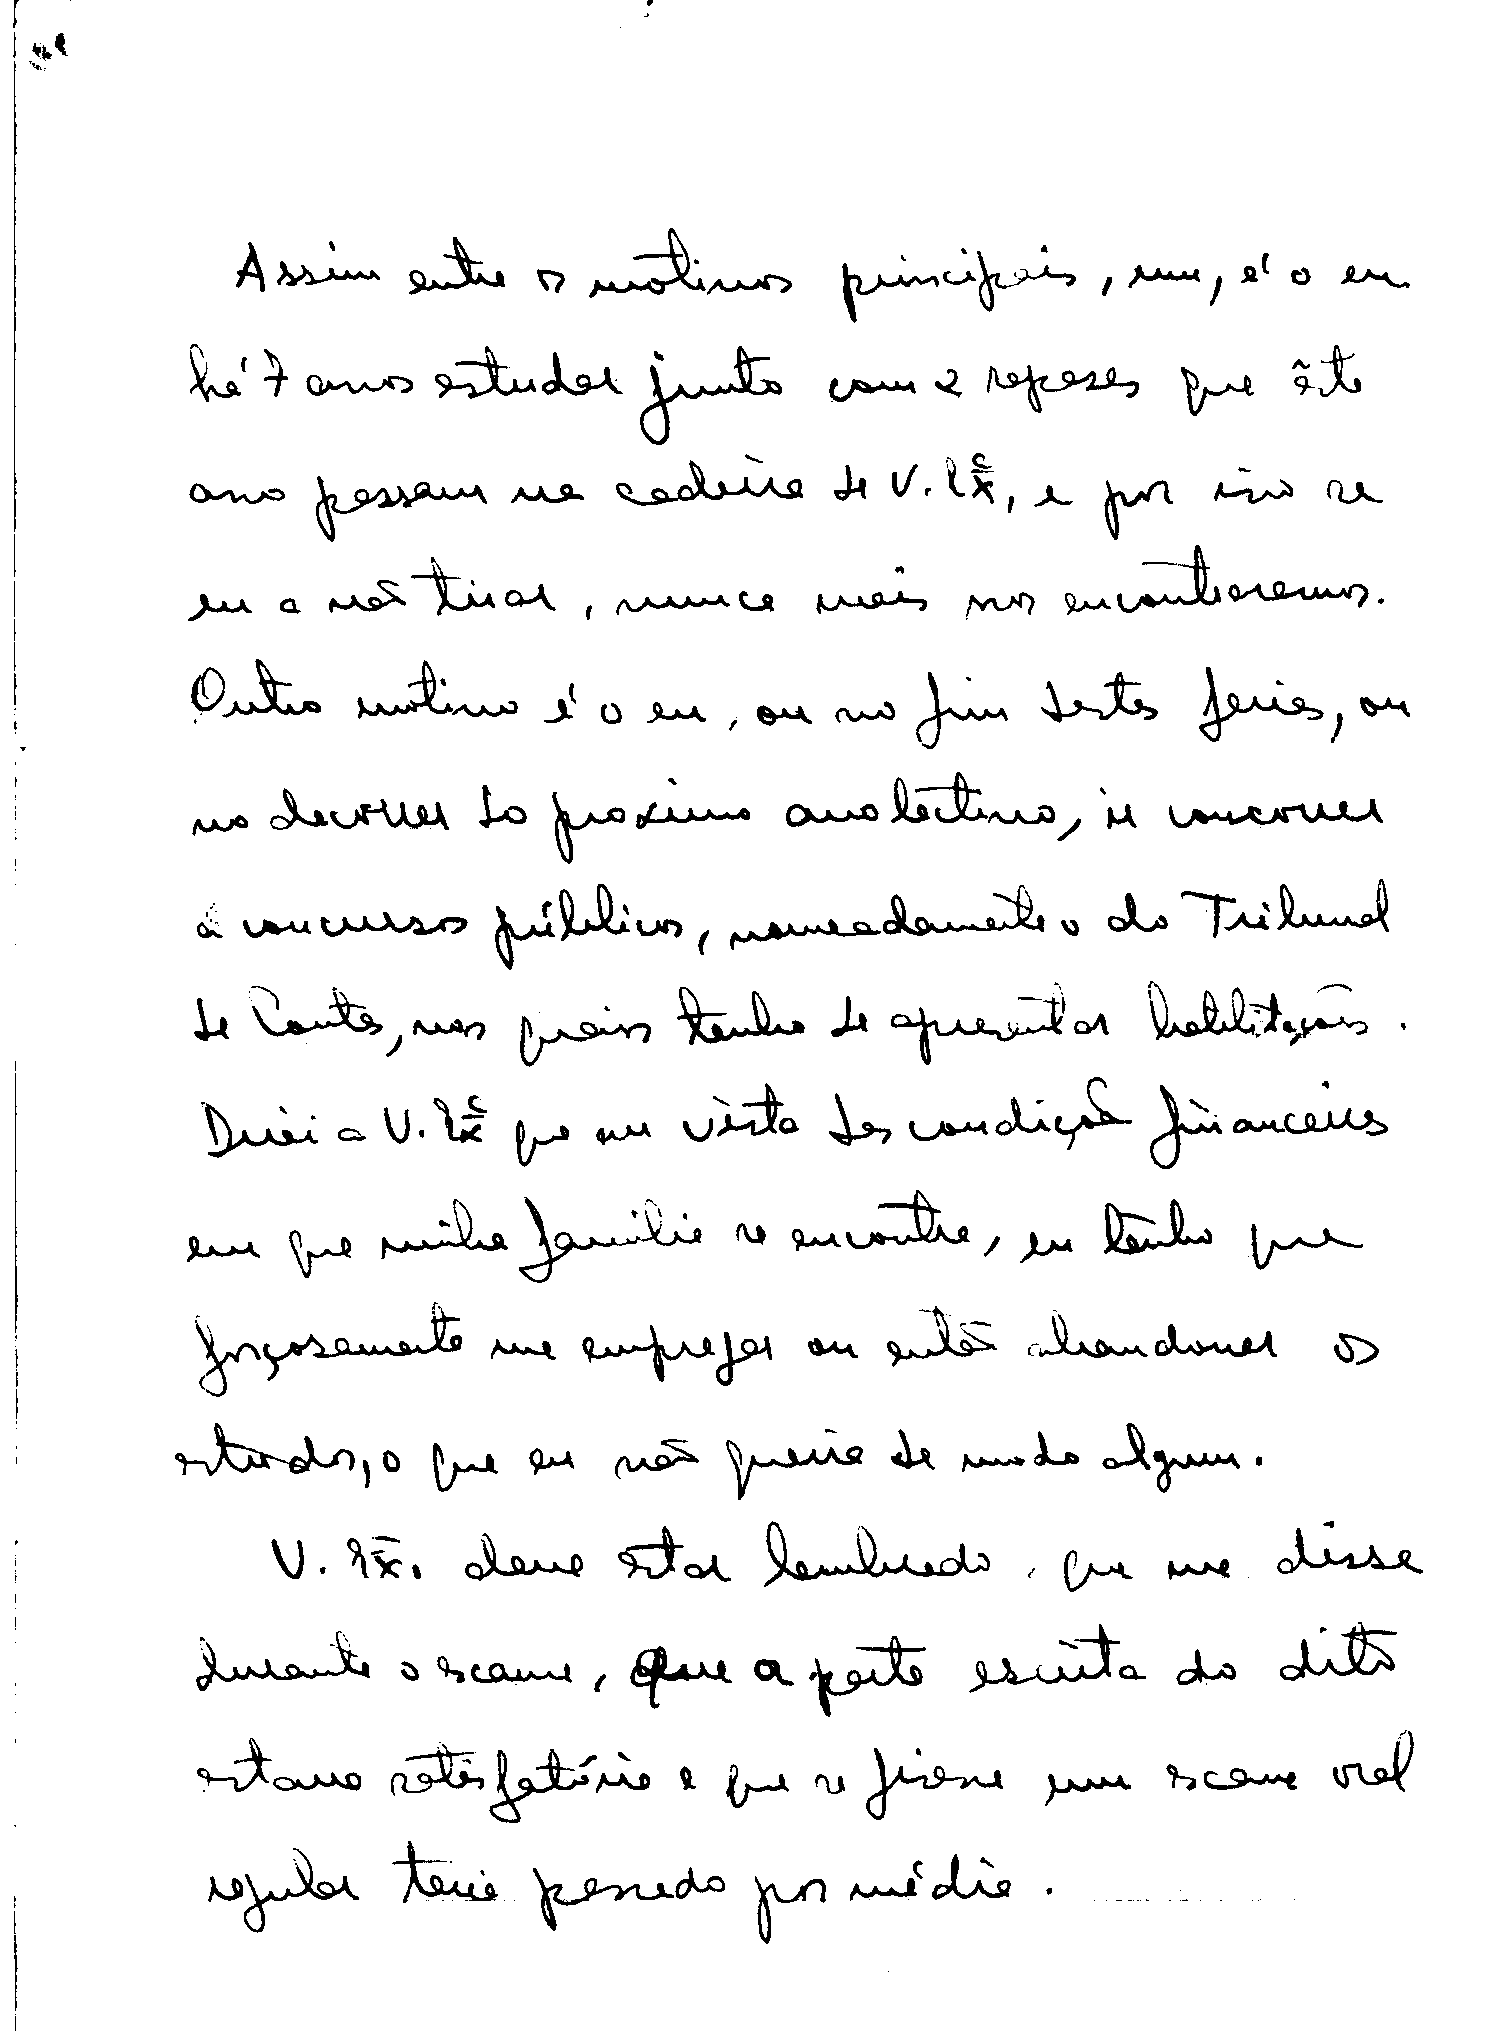 Assim entre os motivos principais, um, é o eu
há 7 anos estudar junto com 2 rapases que êste
ano passam na cadeira de V. Exc, e por isso se
eu a não tirar, nunca mais nos encontraremos.
Outro motivo é o eu, ou no fim destas ferias, ou
no decorrer do proximo ano lectivo, ir concorrer
a concursos públicos, nomeadamente o do Tribunal
de Contas, nos quais tenho de apresentar habilitações.
Direi a V. Exc que em vista das condições financeiras
em que minha familia se encontra, eu tenho que
forçosamente me empregar ou então abandonar os
estudos, o que eu não queria de modo algum.
V. Ex. deve estar lembrado, que me disse
durante o exame, que a parte escrita do dito
estava satisfatória e que se fizesse um exame oral
regular teria passado por média.